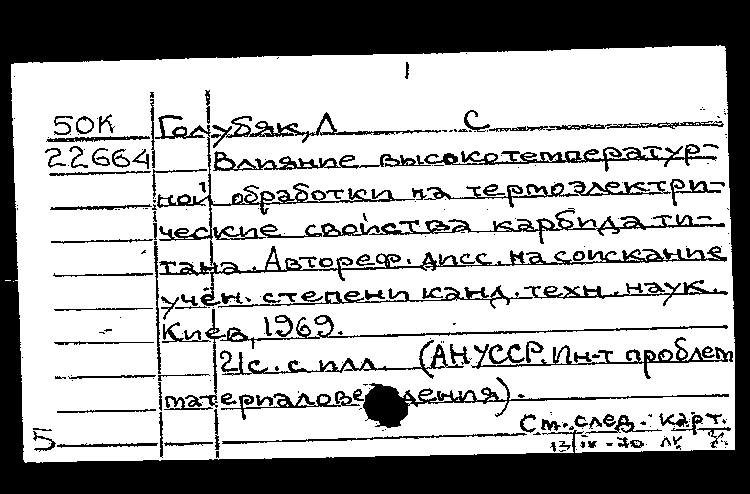 1
50К Голубяк, Л С
22664 Влияние высокотемператур-
ной обработки на термоэлектри-
ческие свойства карбида ти-
тана. Автореф. дисс. на соискание
учён. степени канд. техн. наук.
Киев, 1969.
21с. с илл. (АНУССР. Ин-т проблем
материаловедения).
См. след. карт.
5